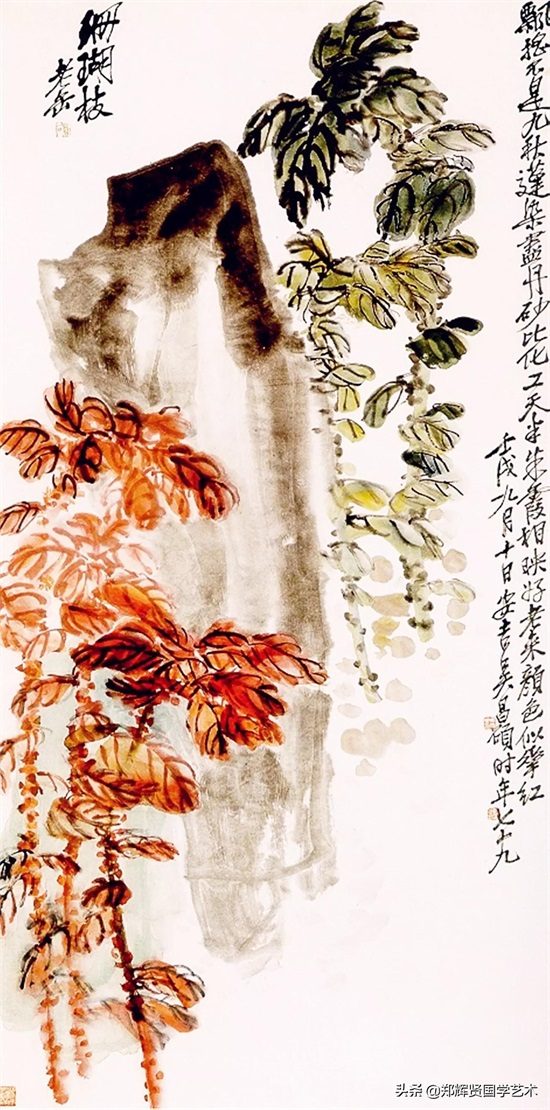 飄搖不是九秋蓬染盡丹砂比化工天半朱霞相映好老來顏色似華紅
壬戌九月十日安吉吳昌碩时年七十九
珊瑚枝
老缶
头条 @郑辉贤国学艺术